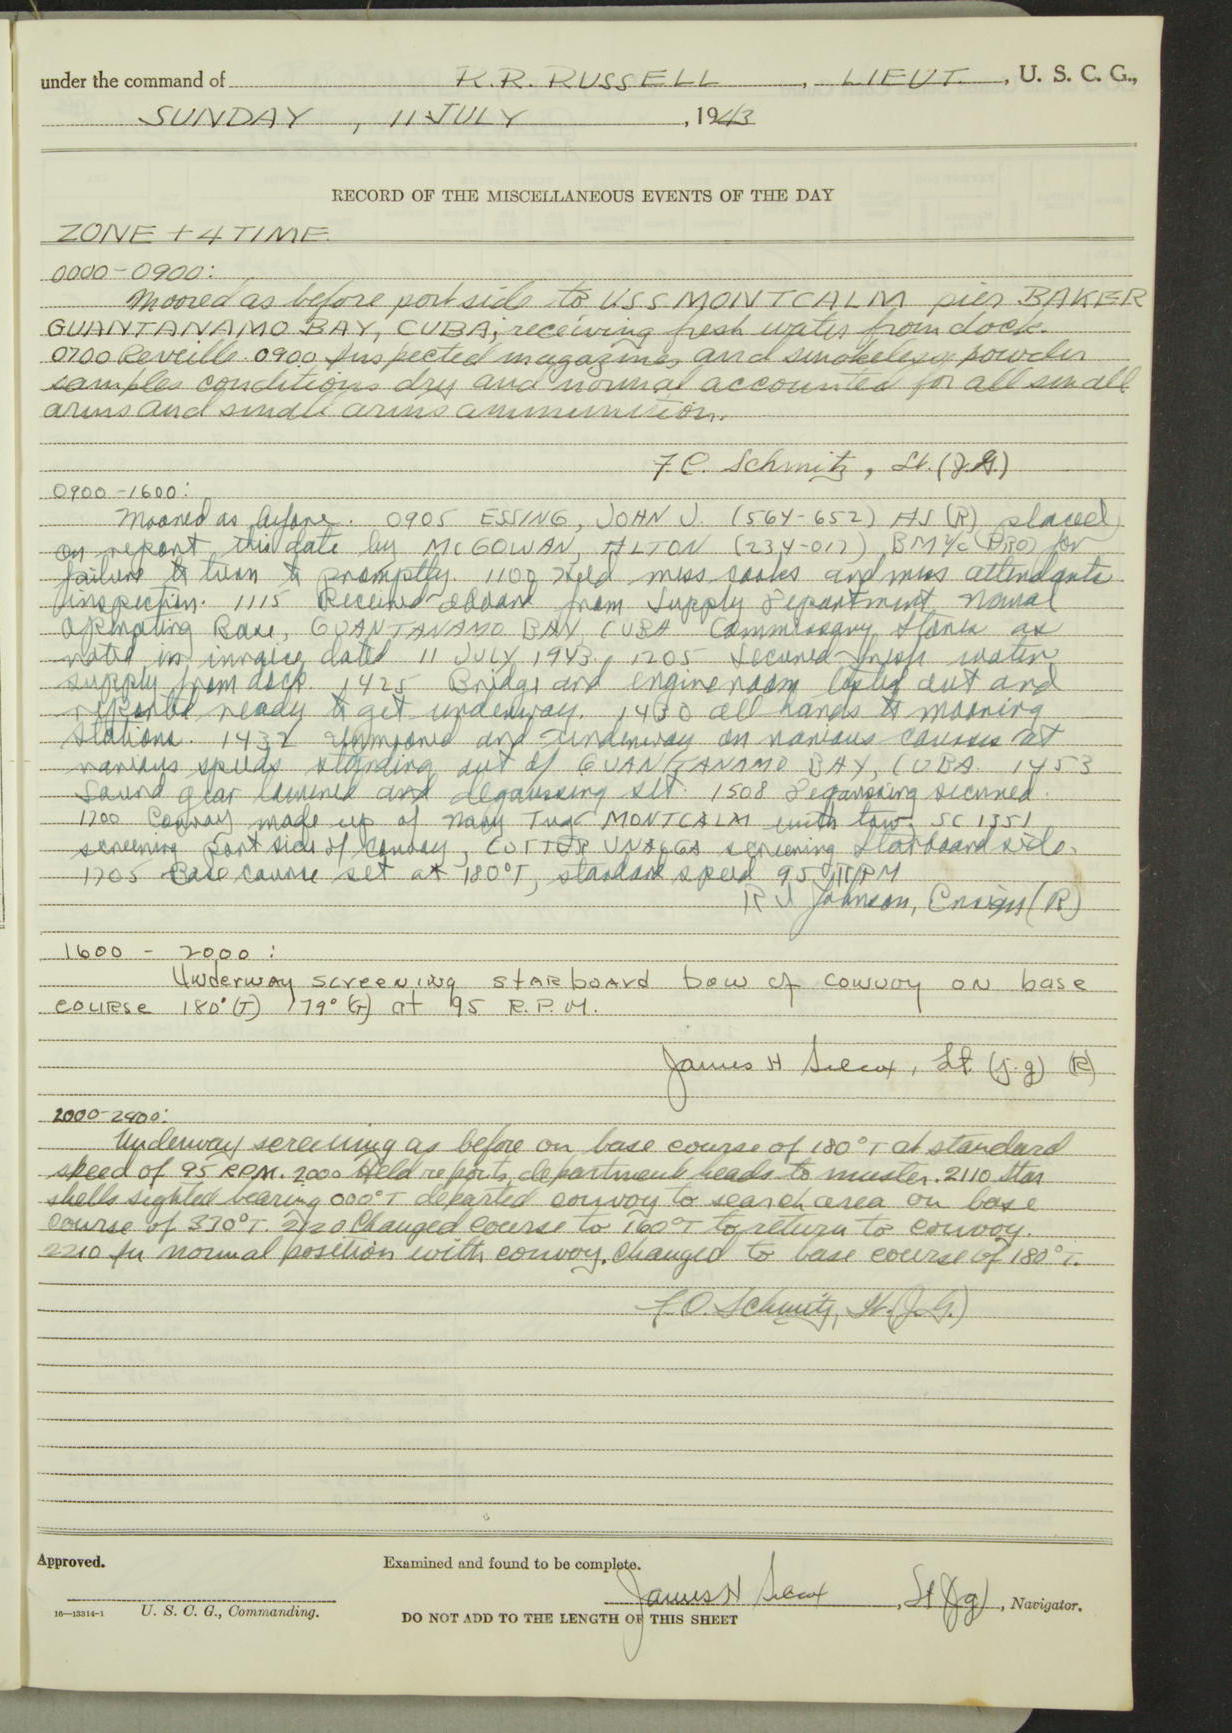 under the command of R.R. RUSSELL, LIEUT., U. S. C. G.,
SUNDAY, 11 JULY, 1943
RECORD OF THE MISCELLANEOUS EVENTS OF THE DAY
ZONE + 4 TIME
0000-0900:
Moored as before port side to USS MONTCALM pier BAKER
GUANTANAMO BAY, CUBA, receiving fresh water from dock.
0700 Reveille. 0900 Inspected magazines and smokeless powder
samples conditions dry and normal accounted for all small
arms and small arms ammunition.
F.C. Schmitz, Lt. (J.G.)
0900-1600:
Moored as before. 0905 ESSING, JOHN J. (564-652) AS (R) placed
on report this date by McGOWAN, ALTON (234-017) BM1/c for
failure to turn to promptly. 1100 Held mess cooks and mess attendants
inspection. 1115 Received aboard from Supply Department Naval
Operating Base, GUANTANAMO BAY, CUBA Commissary stores as
noted in invoice dated 11 JULY 1943. 1205 Secured fresh water
supply from dock. 1425 Bridge and engineroom tested out and
reported ready to get underway. 1430 all hands to mooring
stations. 1432 Unmoored and underway on various courses at
various speeds standing out of GUANTANAMO BAY, CUBA. 1453
Sound gear lowered and degaussing set. 1508 Degaussing secured.
1700 Convoy made up of Navy Tug MONTCALM with tow. SC 1351
screening port side of convoy, CUTTER screening starboard side.
1705 Base course set at 180°T, standard speed 95 RPM
R J Johnson, Ensign (R)
1600 - 2000:
Underway screening starboard bow of convoy on base
course 180°(T) 179°(G) at 95 R.P.M.
James H Silcox, Lt. (j.g) (R)
2000-2400:
Underway screening as before on base course of 180°T at standard
speed of 95 RPM. 2000 Held reports, department heads to muster. 2110 Star
shells sighted bearing 000°T departed convoy to search area on base
course of 330°T. 2120 Changed course to 160°T to return to convoy.
2210 In normal position with convoy. Changed to base course of 180°T.
F.C. Schmitz, Lt. (J.G.)
Approved.
Examined and found to be complete.
James H Silcox, Lt (jg), Navigator.
16—13314-1 U. S. C. G., Commanding.
DO NOT ADD TO THE LENGTH OF THIS SHEET